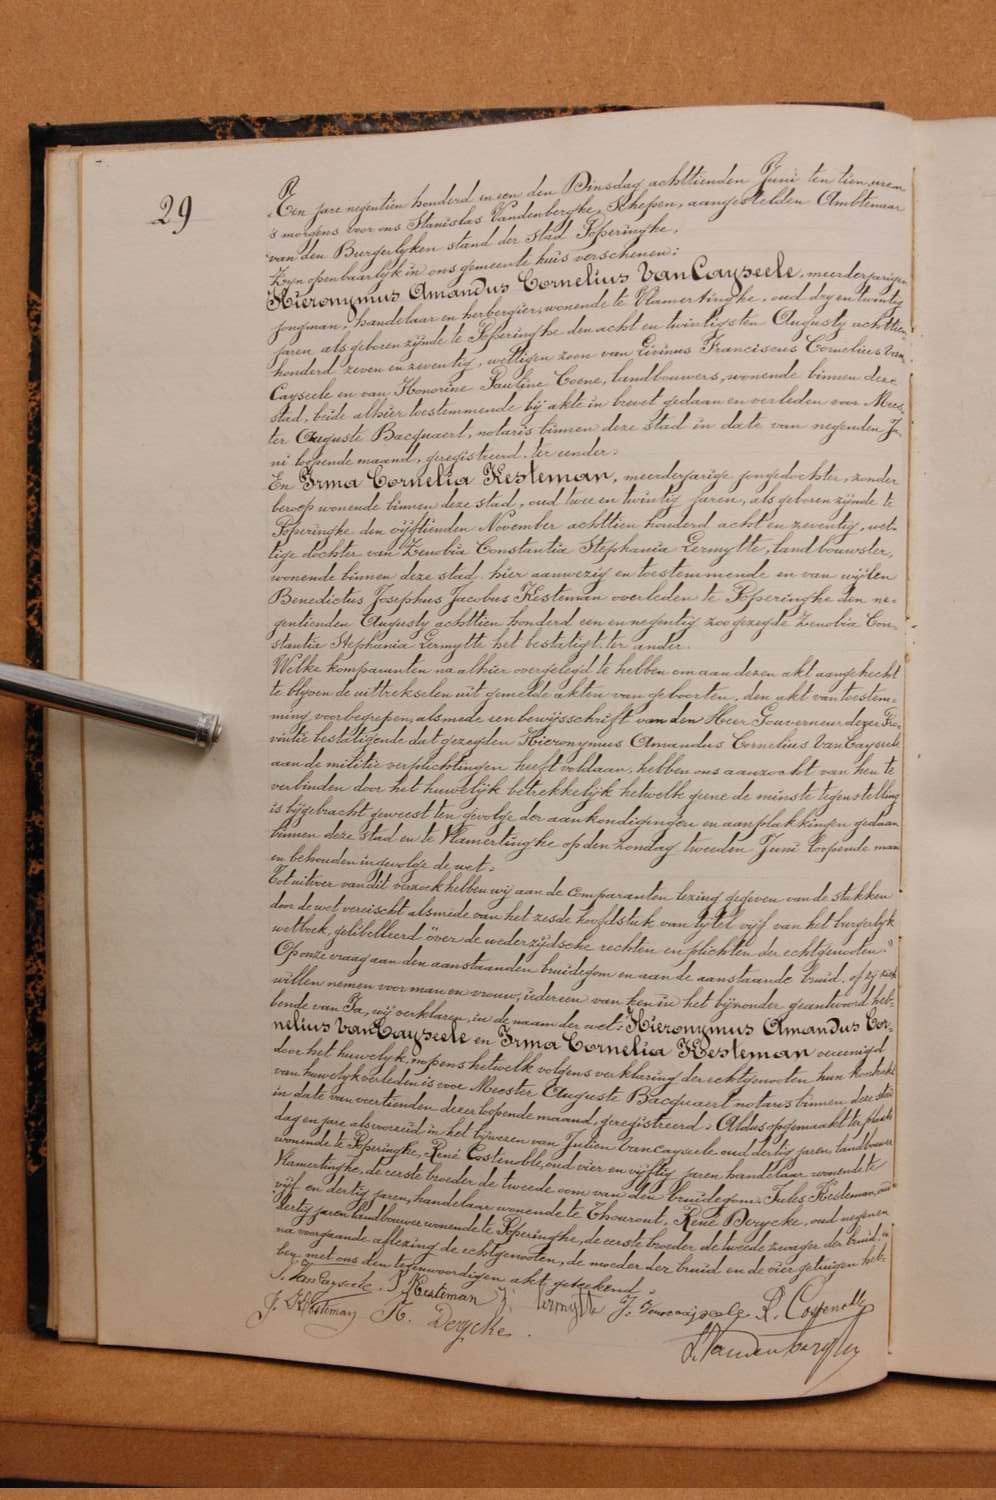 29
Ten jare negentien honderd en een den Dinsdag achttienden Juni ten tien uren
's morgens voor ons Stanislas Vandenberghe, Schepen, aangestelden Ambtenaar
van den Burgerlyken stand der stad Poperinghe,
Zyn openbaarlyk in ons gemeente huis verschenen:
Hieronymus Amandus Cornelius VanCayseele, meerderjarigen
jongman, handelaar en herbergier, wonende te Vlamertinghe, oud dry en twintig
jaren als geboren zynde te Poperinghe den acht en twintigsten Augusty achttien
honderd zeven en zeventig, wettigen zoon van Livinus Franciscus Cornelius Van
Cayseele en van Honorine Pauline Coene, landbouwers, wonende binnen deze
stad, beide alhier toestemmende bij akte in brevet gedaan en verleden voor Mees-
ter Auguste Bacquaert, notaris binnen deze stad in date van negenden Ju-
ni loopende maand, geregistreerd, ter eender.
En Irma Cornelia Kesteman, meerderjarige jongedochter, zonder
beroep wonende binnen deze stad, oud twee en twintig jaren, als geboren zynde te
Poperinghe den vijftienden November achttien honderd acht en zeventig, wet-
tige dochter van Zenobia Constantia Stephania Lermytte, landbouwster,
wonende binnen deze stad hier aanwezig en toestemmende en van wijlen
Benedictus Josephus Jacobus Kesteman overleden te Poperinghe den ne-
gentienden Augusty achttien honderd een en negentig zoo gezegde Zenobia Con-
stantia Stephania Lermytte het bestatigt, ter ander.
Welke komparanten na alhier overgelegd te hebben om aan dezen akt aangehecht
te blyven de uittrekselen uit gemelde akten van geboorten, den akt van toestem-
ming voorbegrepen, alsmede een bewysschrift van den Heer Gouverneur dezer Pro-
vintie bestatigende dat gezegden Hieronymus Amandus Cornelius VanCayseele
aan de militie verplichtingen heeft voldaan, hebben ons aanzocht van hen te
verbinden door het huwelijk betrekkelijk hetwelk geene de minste tegenstelling
is bijgebracht geweest ten gevolge der aankondigingen en aanplakkingen gedaan
binnen deze stad en te Vlamertinghe op den zondag tweeden Juni loopende maan
en behouden ingevolge de wet.
Tot uitvoer van dit verzoek hebben wij aan de comparanten lezing gegeven van de stukken
door de wet vereischt alsmede van het zesde hoofdstuk van tytel vijf van het burgerlyk
wetboek, gelibelleerd "over de wederzijdsche rechten en plichten der echtgenooten."
Op onze vraag aan den aanstaanden bruidegom en aan de aanstaande bruid, of zij zich
willen nemen voor man en vrouw, iedereen van hen in het bijzonder geantwoord heb-
bende van Ja, wij verklaren, in de naam der wet: Hieronymus Amandus Cor-
nelius VanCayseele en Irma Cornelia Kesteman vereenigd
door het huwelyk, nopens hetwelk volgens verklaring der echtgenooten hun kontrakt
van huwelyk verleden is voor Meester Auguste Bacquaert notaris binnen deze stad
in date van veertienden dezer loopende maand, geregistreerd. Aldus opgemaakt ter plaats
dag en jare als vorzeid in het bijwezen van Julien Vancayseele oud dertig jaren, landbouwer
wonende te Poperinghe, René Costenoble, oud vier en vijftig jaren handelaar wonende te
Vlamertinghe, de eerste broeder de tweede oom van den bruidegom; Jules Kesteman, oud
vijf en dertig jaren, handelaar wonende te Thourout, René Derycke, oud negen en
dertig jaren landbouwer wonende te Poperinghe, de eerste broeder de tweede zwager der bruid; en
na voorgaande aflezing de echtgenooten, de moeder der bruid en de vier getuigen heb-
ben met ons den tegenwoordigen akt geteekend.
VanCayseele. Kesteman Z. Lermytte J. Vancayseele R. Costenoble
J. Kesteman R. Derycke.
S. Vandenberghe